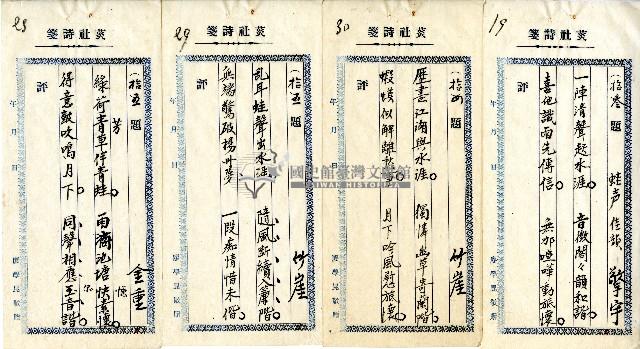 19
箋詩社芸
(拾叁) 題
蛙声 佳韻
擎宇
一陣清聲起水涯。 音微閣々韻和諧。
喜他識雨先傳信。 無那喧嘩動旅懷。
評
年 月 日
30
箋詩社芸
(拾四) 題
竹崖
歷書江湖與水涯。 獨憐幽草青蘭階。
蝦蟆似解離愁。 月下吟風慰旅懷。
評
年 月 日
29
箋詩社芸
(拾五) 題
竹崖
亂耳蛙聲出水涯。 隨風斷續入簾階。
無端驚破揚州夢。 一段痴情惜未偕。
評
年 月 日
國史館臺灣文獻館
TAIWAN HISTORICA
25
箋詩社芸
(拾五) 題
金重
綠荷青草伴青蛙。 雨滴池塘快素懷。
芳
得意鼓吹鳴月下。 同聲相應玉音諧。
評
年 月 日